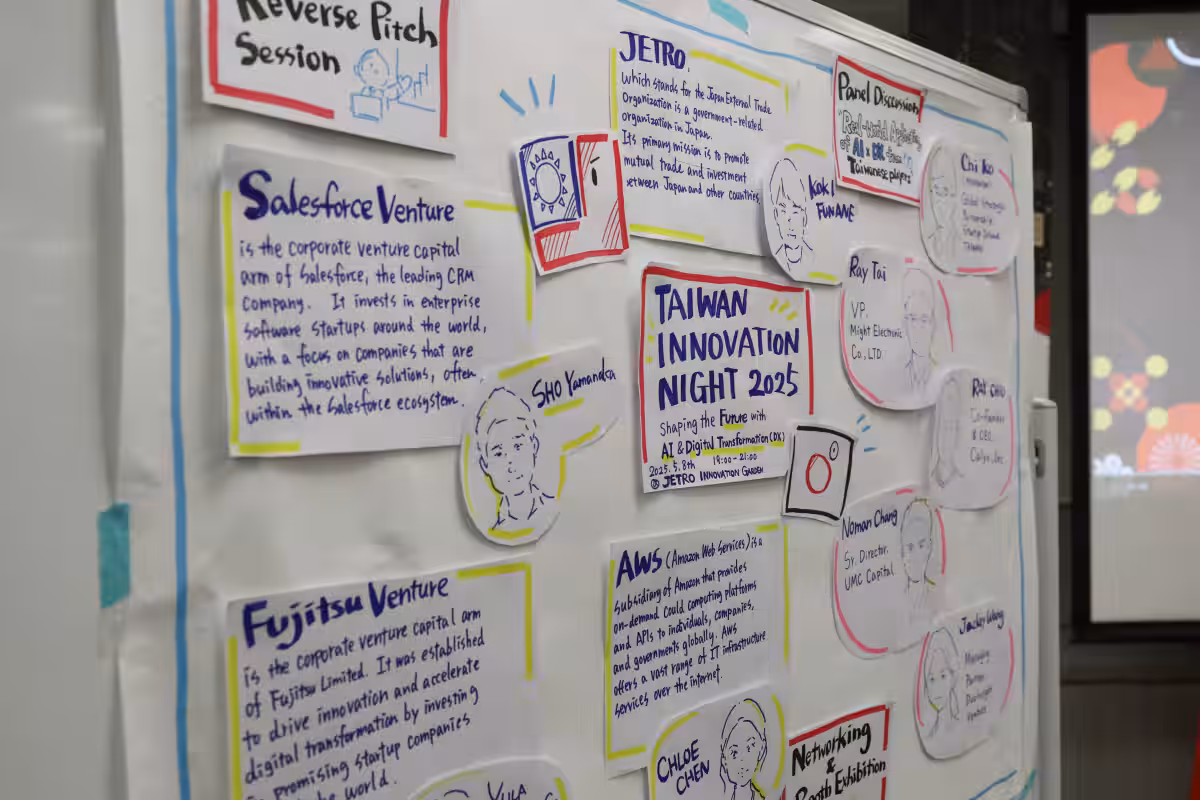 Reverse Pitch
Session
Salesforce Venture
is the corporate venture capital
arm of Salesforce, the leading CRM
company. It invests in enterprise
software startups around the world,
with a focus on companies that are
building innovative solutions, often
within the Salesforce ecosystem.
SHO Yamanaka
Fujitsu Venture
is the corporate venture capital arm
of Fujitsu Limited. It was established
to drive innovation and accelerate
digital transformation by investing
promising startup companies
the world.
YULA
JETRO,
which stands for the Japan External Trade
Organization is a government-related
organization in Japan.
Its primary mission is to promote
mutual trade and investment
between Japan and other countries
KOKI
FUNANE
TAIWAN
INNOVATION
NIGHT 2025
Shaping the Future with
AI & Digital Transformation (DX)
2025. 5. 8th 19:00-21:00
@ JETRO INNOVATION GARDEN
AWS (Amazon Web Services) is a
subsidiary of Amazon that provides
on-demand Could computing platforms
and APIs to individuals, companies,
and governments globally. AWS
offers a vast range of IT infrastructure
services over the internet.
CHLOE
CHEN
Panel Discussion
"Real-World Application
of AI & DX from
Taiwanese players"
Chi Ko
Taiwan
Ray Tai
VP.
Might Electronic
Co., LTD
Ray Chu
Co-founder
& CEO
Noman Chang
Sr. Director.
UMC Capital
Jackey Wang
Managing
Partner
Networking
&
Booth Exhibition